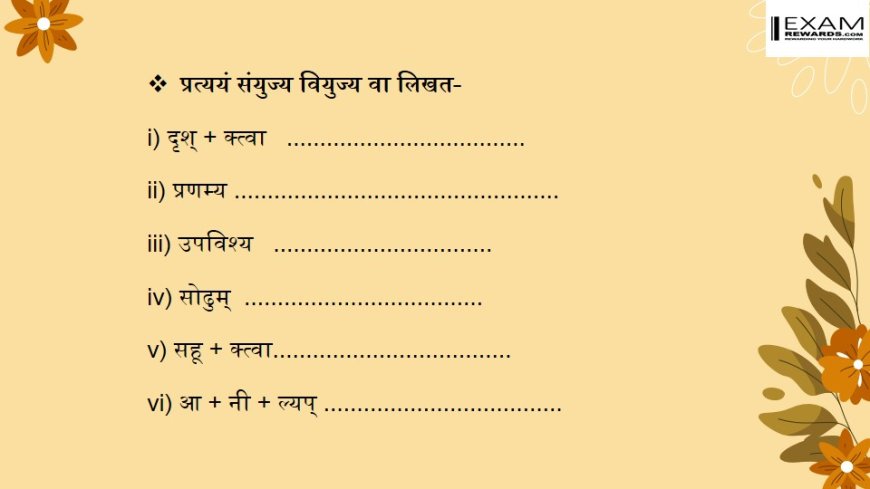 EXAM
REWARDS.COM
REWARDING YOUR HARDWORK
❖ प्रत्ययं संयुज्य वियुज्य वा लिखत-
i) दृश् + क्त्वा ....................................
ii) प्रणम्य .................................................
iii) उपविश्य .................................
iv) सोढुम् ....................................
v) सहू + क्त्वा....................................
vi) आ + नी + ल्यप् ....................................